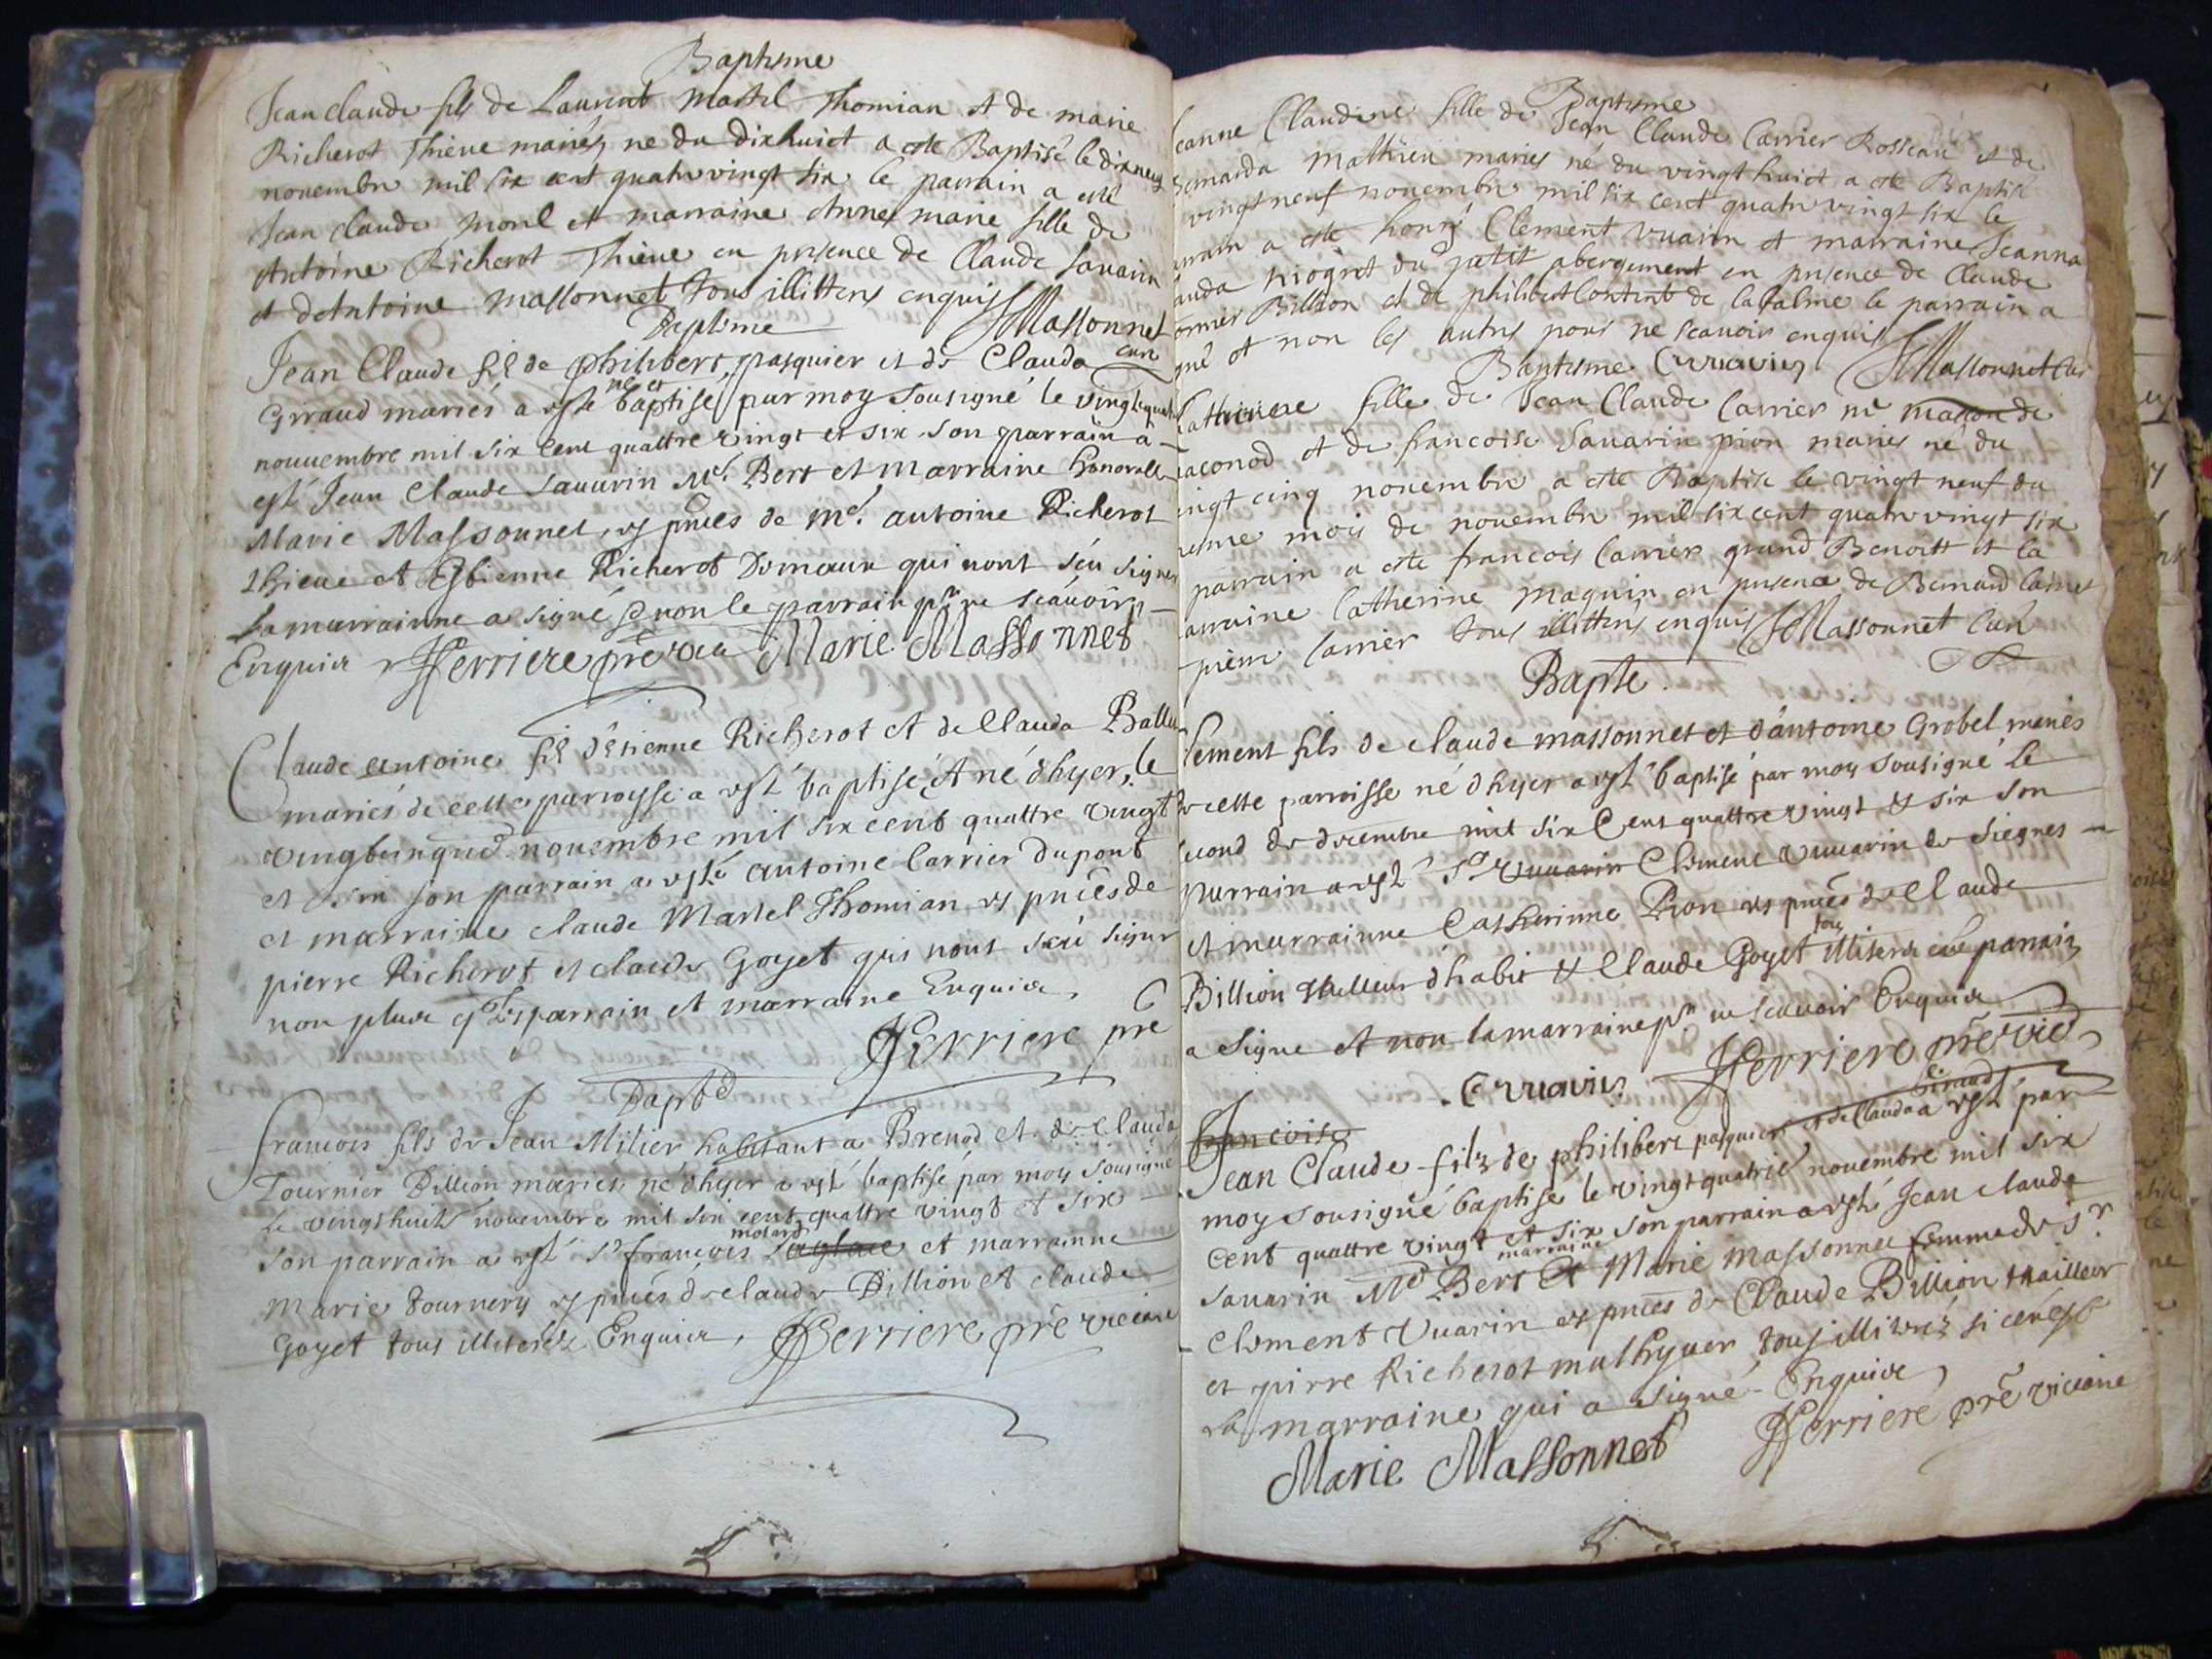 Baptisme
Jean claude fils de Laurent Martel Thomian et de marie
Richerot Thieue mariés ne du dixhuict a esté Baptisé le dixneuf
nouembre mil six cent quatrevingt six le parrain a esté
Jean claude morel et marraine Anne marie fille de
Antoine Richerot Thieue en presence de Claude sauarin
et dAntoine massonnet tous illitterés enquis Massonnet
curé
Baptisme
Jean Claude fils de philibert pasquier et de Clauda
Girraud mariés a esté né et baptisé par moy sousigné le vingtquatre
nouuembre mil six cent quattre vingt et six son parrain a
esté Jean Claude sauarin Me. Bert et marraine honorable
Marie Massonnet es pnces de me. antoine Richerot
thieue et Estienne Richerot Domeur qui nont sceu signer
La marrainne a signé & non le parrain pr ne scauoir
Enquis Ferriere pre vic Marie Massonnet
Claude antoine fils d'Etienne Richerot et de Clauda Ballu
mariés de cette parroysse a esté baptisé Et né dhyer, le
vingtcinquie nouembre mil six cent quattre vingt
et six son parrain a esté antoine Carrier dupont
et marraine claude Martel Thomian es pnces de
pierre Richerot et claude Goyet qui nont sceu signer
non plus q les parrain et marraine Enquis
Ferriere pre
Bapte
francois fils de Jean Milier habitant a Brenod et de Clauda
Tournier Billion mariés né dhyer a esté baptisé par moy sousigné
le vingt huict nouembre mil six cent quattre vingt et six
son parrain a esté sr francois molard et marrainne
Marie Tournery es pnces de claude Billion et claude
Goyet tous illiterés Enquis, Ferriere pre vicaire
Baptisme
Jeanne Claudine fille de Jean Claude Carrier Rosseau et de
Bernarda Mathieu mariés né du vingt huict a esté Baptisé
vingt neuf nouembre mil six cent quatre vingt six le
parrain a este honé Clement vuarin et marraine Jeanna
auda niogret du petit abergement en presence de Claude
ornier Billion et de philibert Contint de la balme le parrain a
gné et non les autres pour ne scauoir enquis
Cvuarin Massonnet Cur
Baptisme
Catherine fille de Jean Claude Carrier me masson de
aconod et de francoise Sauarin pion mariés né du
ingt cinq nouembre a esté Baptisé le vingt neuf du
esme mois de nouembre mil six cent quatre vingt six
parrain a esté francois Carrier grand Benoitt et la
arraine Catherine maquin en presence de Bernard Carrier
pierre Carrier tous illitterés enquis Massonnet Curé
Bapte.
lement fils de claude massonnet et d'antoine Grobel mariés
de cette parroisse né dhyer a esté baptisé par moy sousigné le
second de decembre mil six Cent quattre vingt & six son
parrain a esté Sr vuarin Clement vuarin de siegnes
et marrainne Catherinne Pion es pnces de Claude
Billion tailleur dhabit & Claude Goyet tous illiterés et le parrain
a signe et non la marraine pr ne scauoir Enquis
Cvuarin. Ferriere pre vic
francoise
Jean Claude filz de philibert pasquier et de Clauda Giraud a esté par
moy sousigné baptisé le vingt quatrie nouembre mil six
cent quattre vingt et six son parrain a esté Jean claude
sauarin Me Bert et marraine Marie Massonnet femme de sr
Clement Vuarin es pnces de Claude Billion tailleur
et pirre Richerot mathyuer tous illiterez si ce n'est
la marraine qui a signé Enquis
Marie Massonnet Ferriere pre vicaire